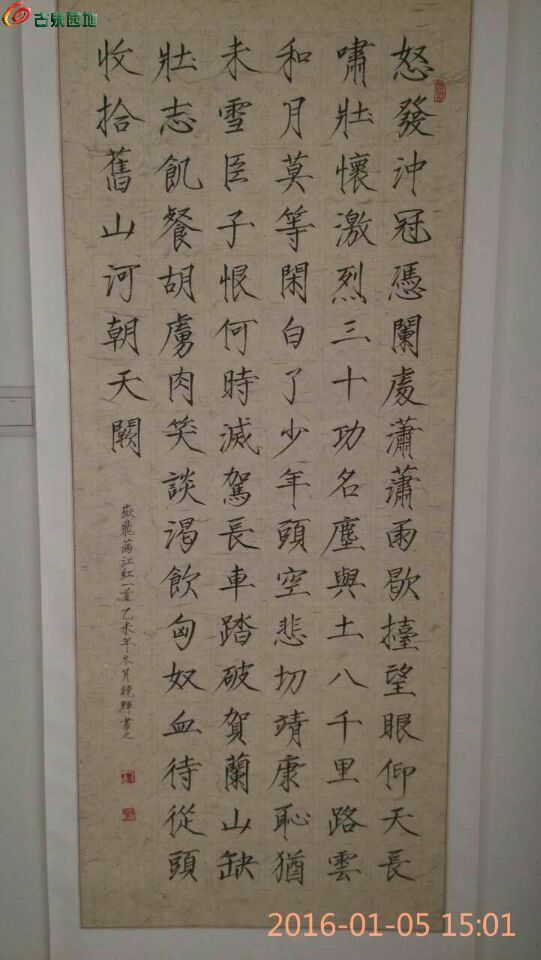 古泉园地
怒發沖冠憑闌處瀟瀟雨歇擡望眼仰天長
嘯壯懷激烈三十功名塵與土八千里路雲
和月莫等閑白了少年頭空悲切靖康恥猶
未雪臣子恨何時滅駕長車踏破賀蘭山缺
壯志飢餐胡虜肉笑談渴飲匈奴血待從頭
收拾舊山河朝天闕
嶽飛滿江紅一首乙未年冬月曉輝書之
2016-01-05 15:01